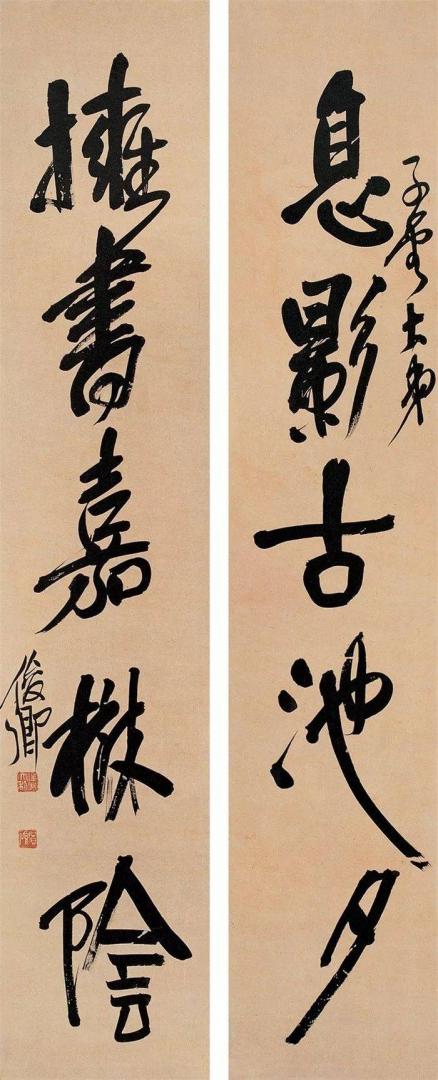 息影古池夕
子雲大弟
擁書嘉樹陰
俊卿